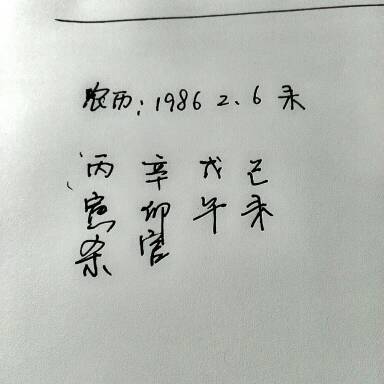 农历: 1986 2. 6 未
丙 辛 戊 己
寅 卯 午 未
杀 官